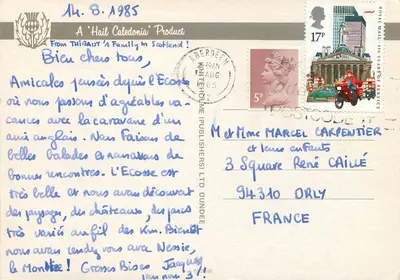 14.8.1985
A "Hail Caledonia" Product
From THIBAUT's Family in Scotland!
Bien chers tous,
Amicales pensées depuis l'Ecosse
où nous passons d'agréables va-
cances avec la caravane d'un
ami anglais. Nous faisons de
belles balades et
bonnes rencontres. L'Ecosse est
très belle et nous avons découvert
des paysages, des châteaux, des parcs
très variés au fil des Km. Bientôt
nous avons rendez vous avec Nessie,
le Monstre! Grosses Bises Jacques
ABERDEEN
AUG
WHITEHOLME (PUBLISHERS) LTD DUNDEE
5P
17P
ROYAL MAIL
M et Mme MARCEL CARPENTIER
et leurs enfants
3 Square René CAILLÉ
94310 ORLY
FRANCE